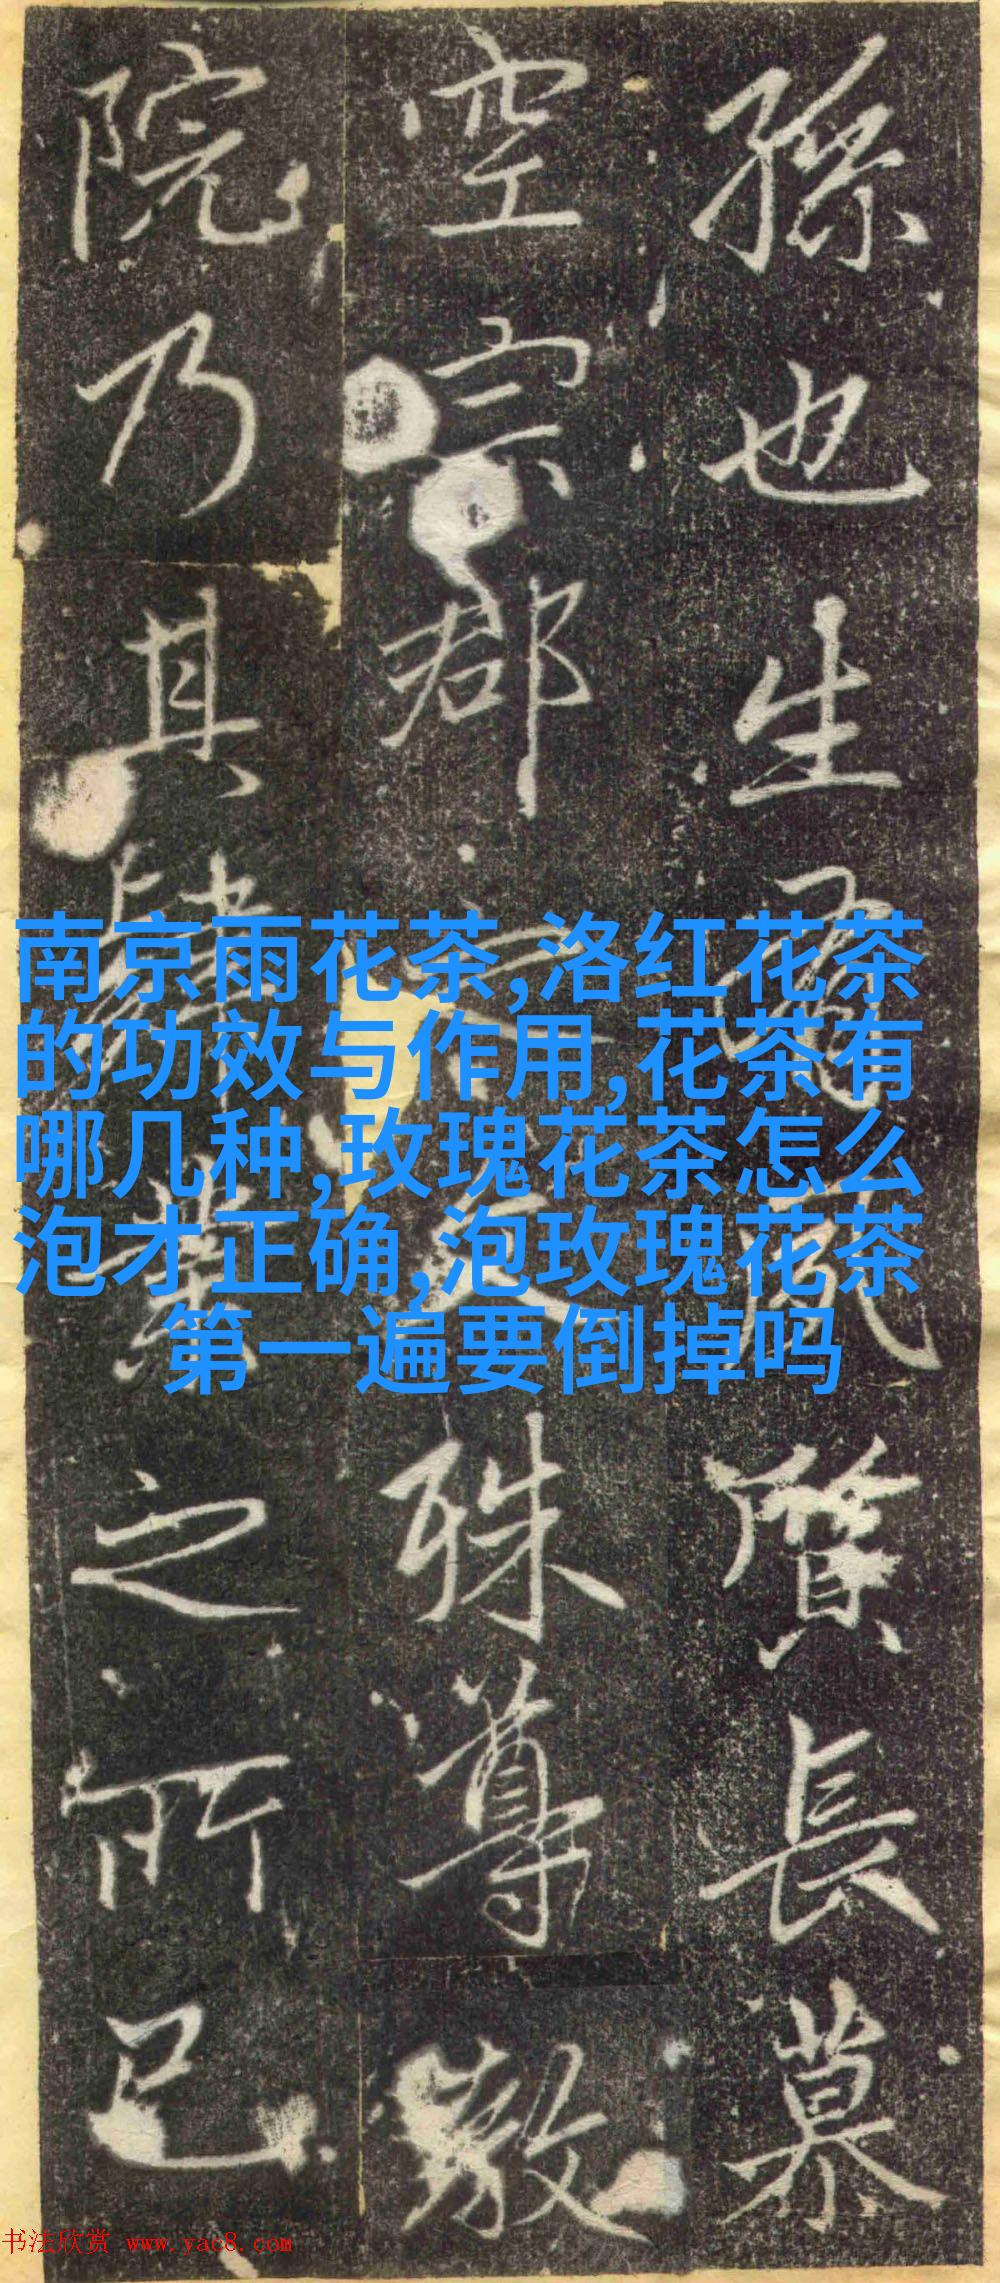 孫也生靈風質長慕
空宗郡之文殊尊敬
院乃其肆業之所已
南京雨花茶,洛红花茶
的功效与作用,花茶有
哪几种,玫瑰花茶怎么
泡才正确,泡玫瑰花茶
第一遍要倒掉吗
书法欣赏 www.yac8.com